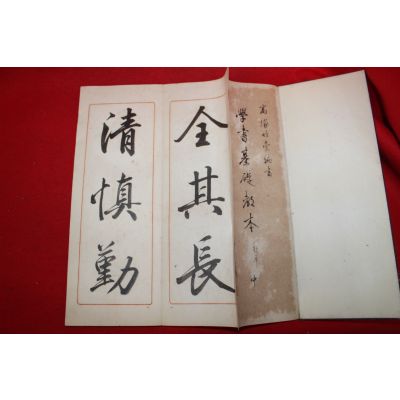 學書基礎教本
行書 中
全其長
清慎勤